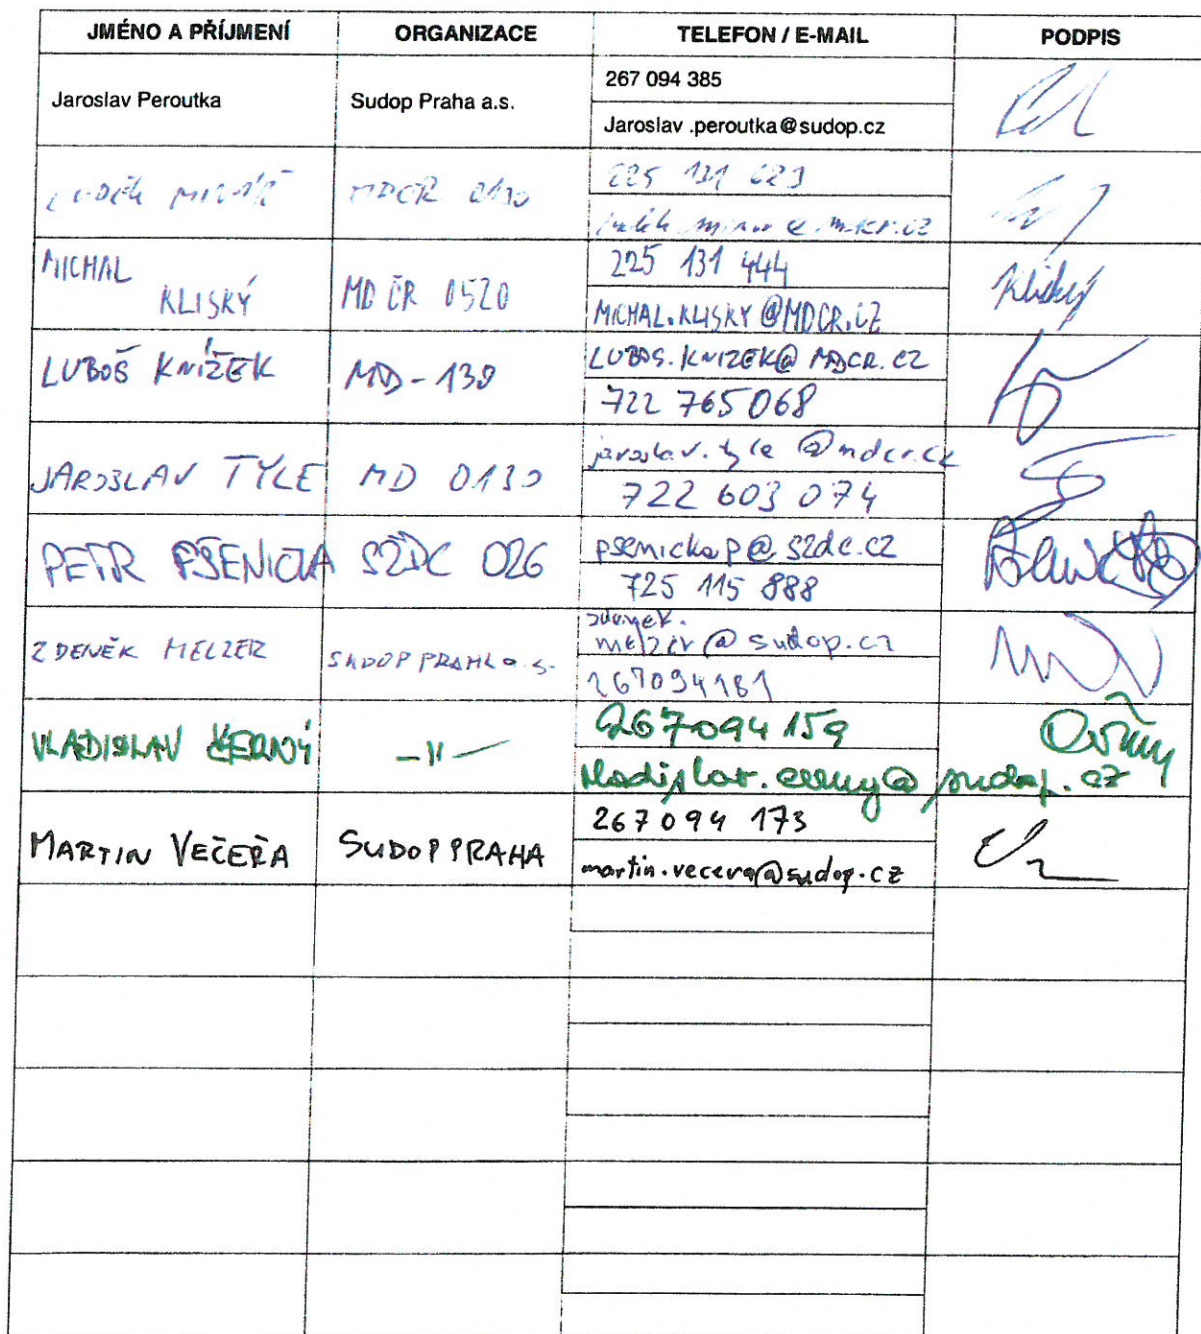 JMÉNO A PŘÍJMENÍ ORGANIZACE TELEFON / E-MAIL PODPIS
Jaroslav Peroutka Sudop Praha a.s. 267 094 385
Jaroslav .peroutka@sudop.cz
LUDĚK MDČR 0130 225 131
MICHAL KLISKÝ MD ČR 0520 225 131 444 Kliský
MICHAL.KLISKY@MDCR.CZ
LUBOŠ KNÍŽEK MD-130 LUBOS.KNIZEK@MDCR.CZ
722 765 068
JAROSLAV TYLE MD 0130 jaroslav.tyle@mdcr.cz
722 603 074
PETR PŠENIČKA SŽDC O26 psenickap@szdc.cz
725 115 888
ZDENĚK MELZER SUDOP PRAHA a.s. zdenek.
melzer@sudop.cz
267094181
VLADISLAV ČERNÝ -"- 267094159
vladislav.cerny@sudop.cz
MARTIN VEČEŘA SUDOP PRAHA 267 094 173
martin.vecera@sudop.cz